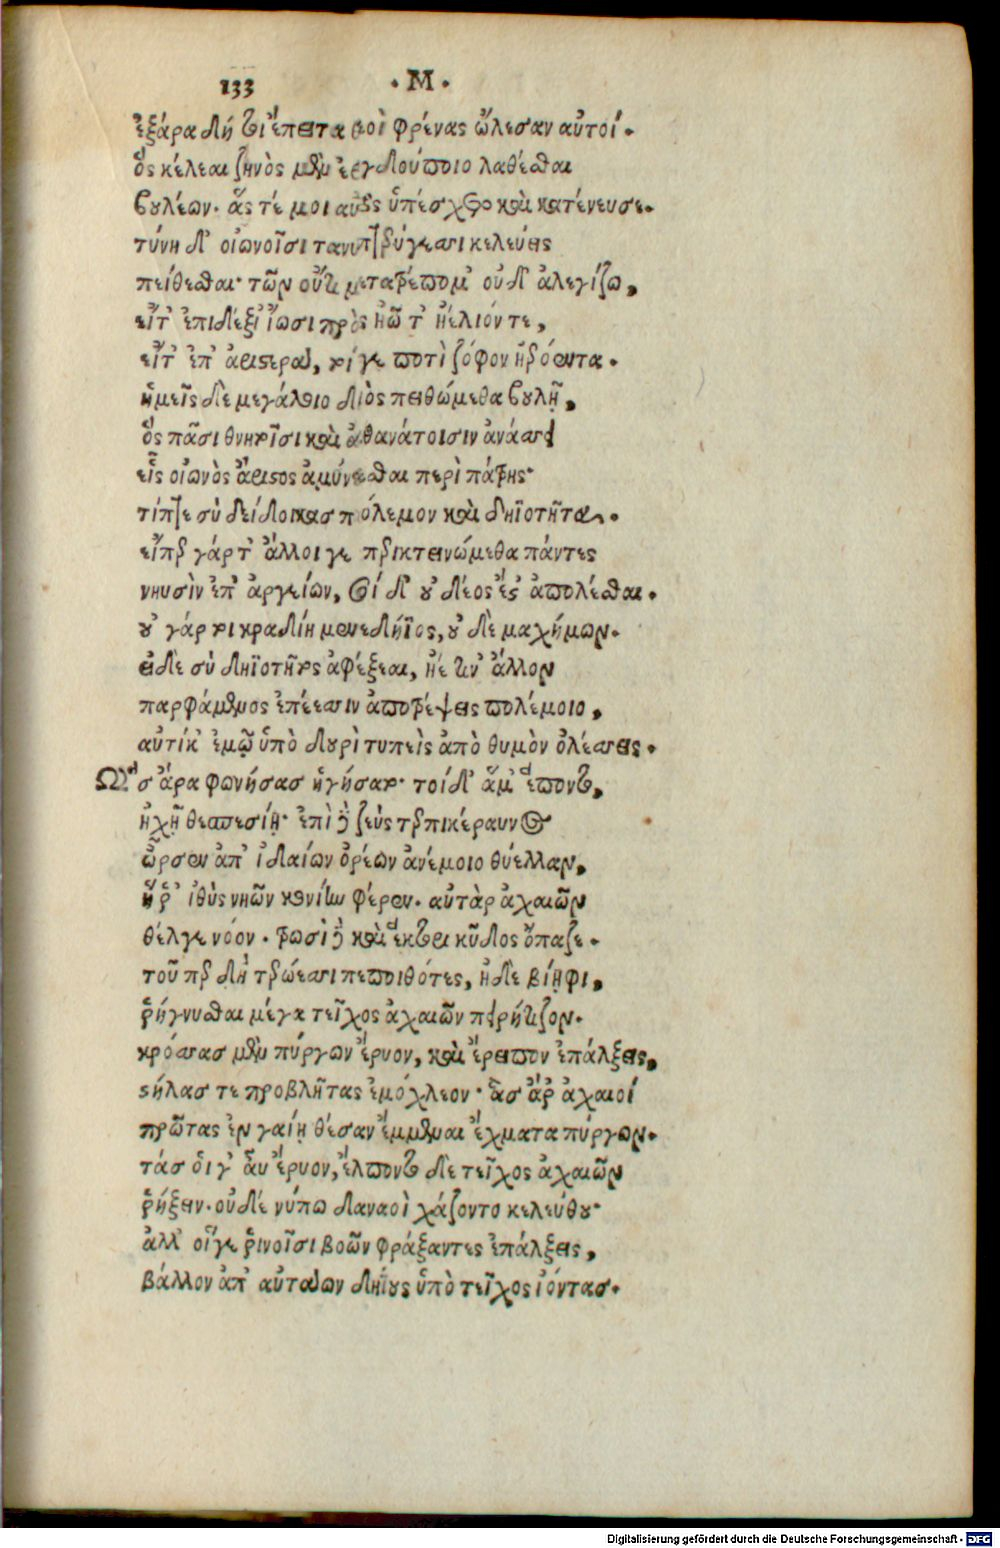 133 · Μ ·
ἐξάρα δή τοι ἔπειτα θεοὶ φρένας ὤλεσαν αὐτοί.
ὃς κέλεαι ζηνὸς μὲν ἐριγδούποιο λαθέσθαι
βουλέων. ἅς τέ μοι αὐτὸς ὑπέσχετο καὶ κατένευσε.
τύνη δ' οἰωνοῖσι τανυπτερύγεσσι κελεύεις
πείθεσθαι· τῶν οὔτι μετατρέπομ' οὐδ' ἀλεγίζω,
εἴτ' ἐπιδέξι' ἴωσι πρὸς ἠῶ τ' ἠέλιόν τε,
εἴτ' ἐπ' ἀριστερὰ, τοίγε ποτὶ ζόφον ἠερόεντα.
ἡμεῖς δὲ μεγάλοιο διὸς πειθώμεθα βουλῇ,
ὃς πᾶσι θνητοῖσι καὶ ἀθανάτοισιν ἀνάσσει
εἷς οἰωνὸς ἄριστος ἀμύνεσθαι περὶ πάτρης·
τίπτε σὺ δείδοικας πόλεμον καὶ δηϊοτῆτα.
εἴπερ γάρ τ' ἄλλοι γε περικτεινώμεθα πάντες
νηυσὶν ἐπ' ἀργείων, σοί δ' οὐ δέος ἔστ' ἀπολέσθαι.
οὐ γάρ τοι κραδίη μενεδήϊος, οὐδὲ μαχήμων.
εἰ δὲ σὺ δηϊοτῆτος ἀφέξεαι, ἠέ τιν' ἄλλον
παρφάμενος ἐπέεσσιν ἀποτρέψεις πολέμοιο,
αὐτίκ' ἐμῷ ὑπὸ δουρὶ τυπεὶς ἀπὸ θυμὸν ὀλέσσεις.
Ὣς ἄρα φωνήσας ἡγήσατο· τοὶ δ' ἅμ' ἕποντο,
ἠχῇ θεσπεσίῃ· ἐπὶ δὲ ζεὺς τερπικέραυνος
ὦρσεν ἀπ' ἰδαίων ὀρέων ἀνέμοιο θύελλαν,
ἥ ῥ' ἰθὺς νηῶν κονίην φέρεν. αὐτὰρ ἀχαιῶν
θέλγε νόον. τρωσὶ δὲ καὶ ἕκτορι κῦδος ὄπαζε.
τοῦ περ δὴ τεράεσσι πεποιθότες, ἠδὲ βίηφι,
ῥήγνυσθαι μέγα τεῖχος ἀχαιῶν πειρήτιζον.
κρόσσας μὲν πύργων ἔρυον, καὶ ἔρειπον ἐπάλξεις,
στήλας τε προβλῆτας ἐμόχλεον· ἃς ἄρ' ἀχαιοί
πρώτας ἐν γαίῃ θέσαν ἔμμεναι ἔχματα πύργων.
τάς οἵ γ' αὖ ἔρυον, ἔλποντο δὲ τεῖχος ἀχαιῶν
ῥήξειν. οὐδέ νύπω δαναοὶ χάζοντο κελεύθου·
ἀλλ' οἵγε ῥινοῖσι βοῶν φράξαντες ἐπάλξεις,
βάλλον ἀπ' αὐτάων δηΐους ὑπὸ τεῖχος ἰόντας.
Digitalisierung gefördert durch die Deutsche Forschungsgemeinschaft - DFG